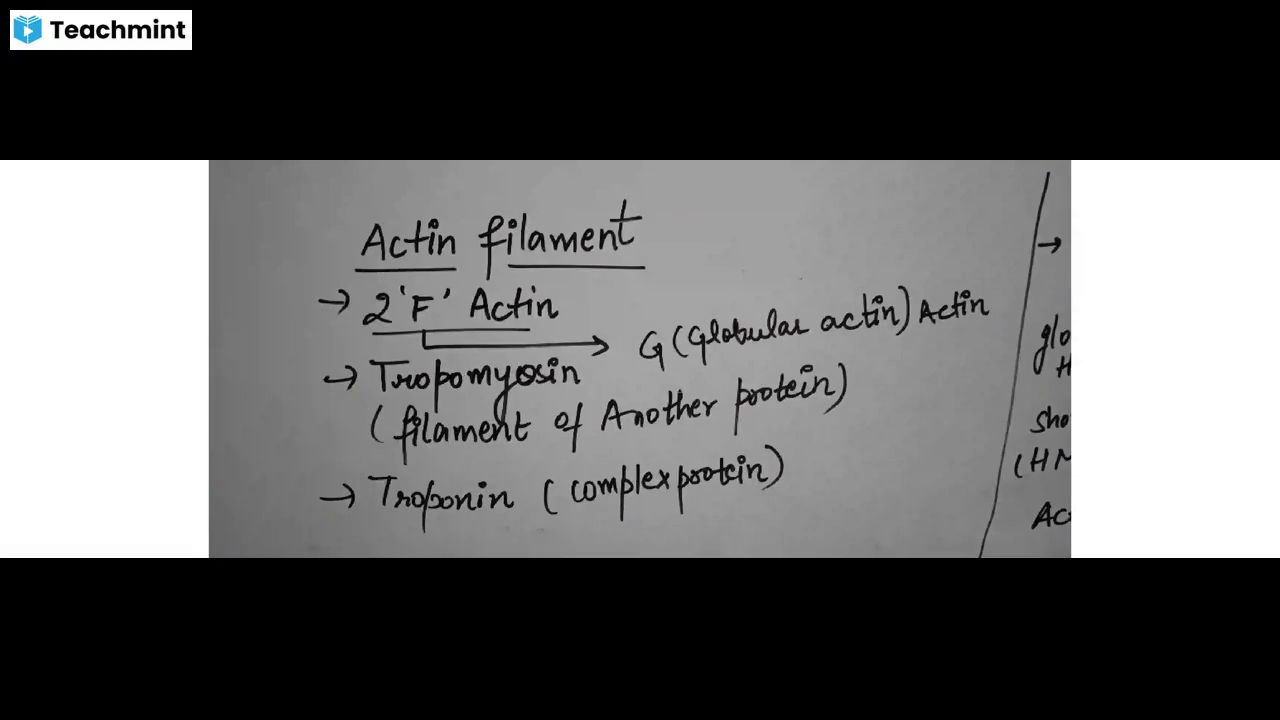 Teachmint
Actin filament
→ 2 'F' Actin
G (Globular actin) Actin
→ Tropomyosin
(filament of Another protein)
→ Troponin (complex protein)
→
glo
H
sho
(HM
Ac